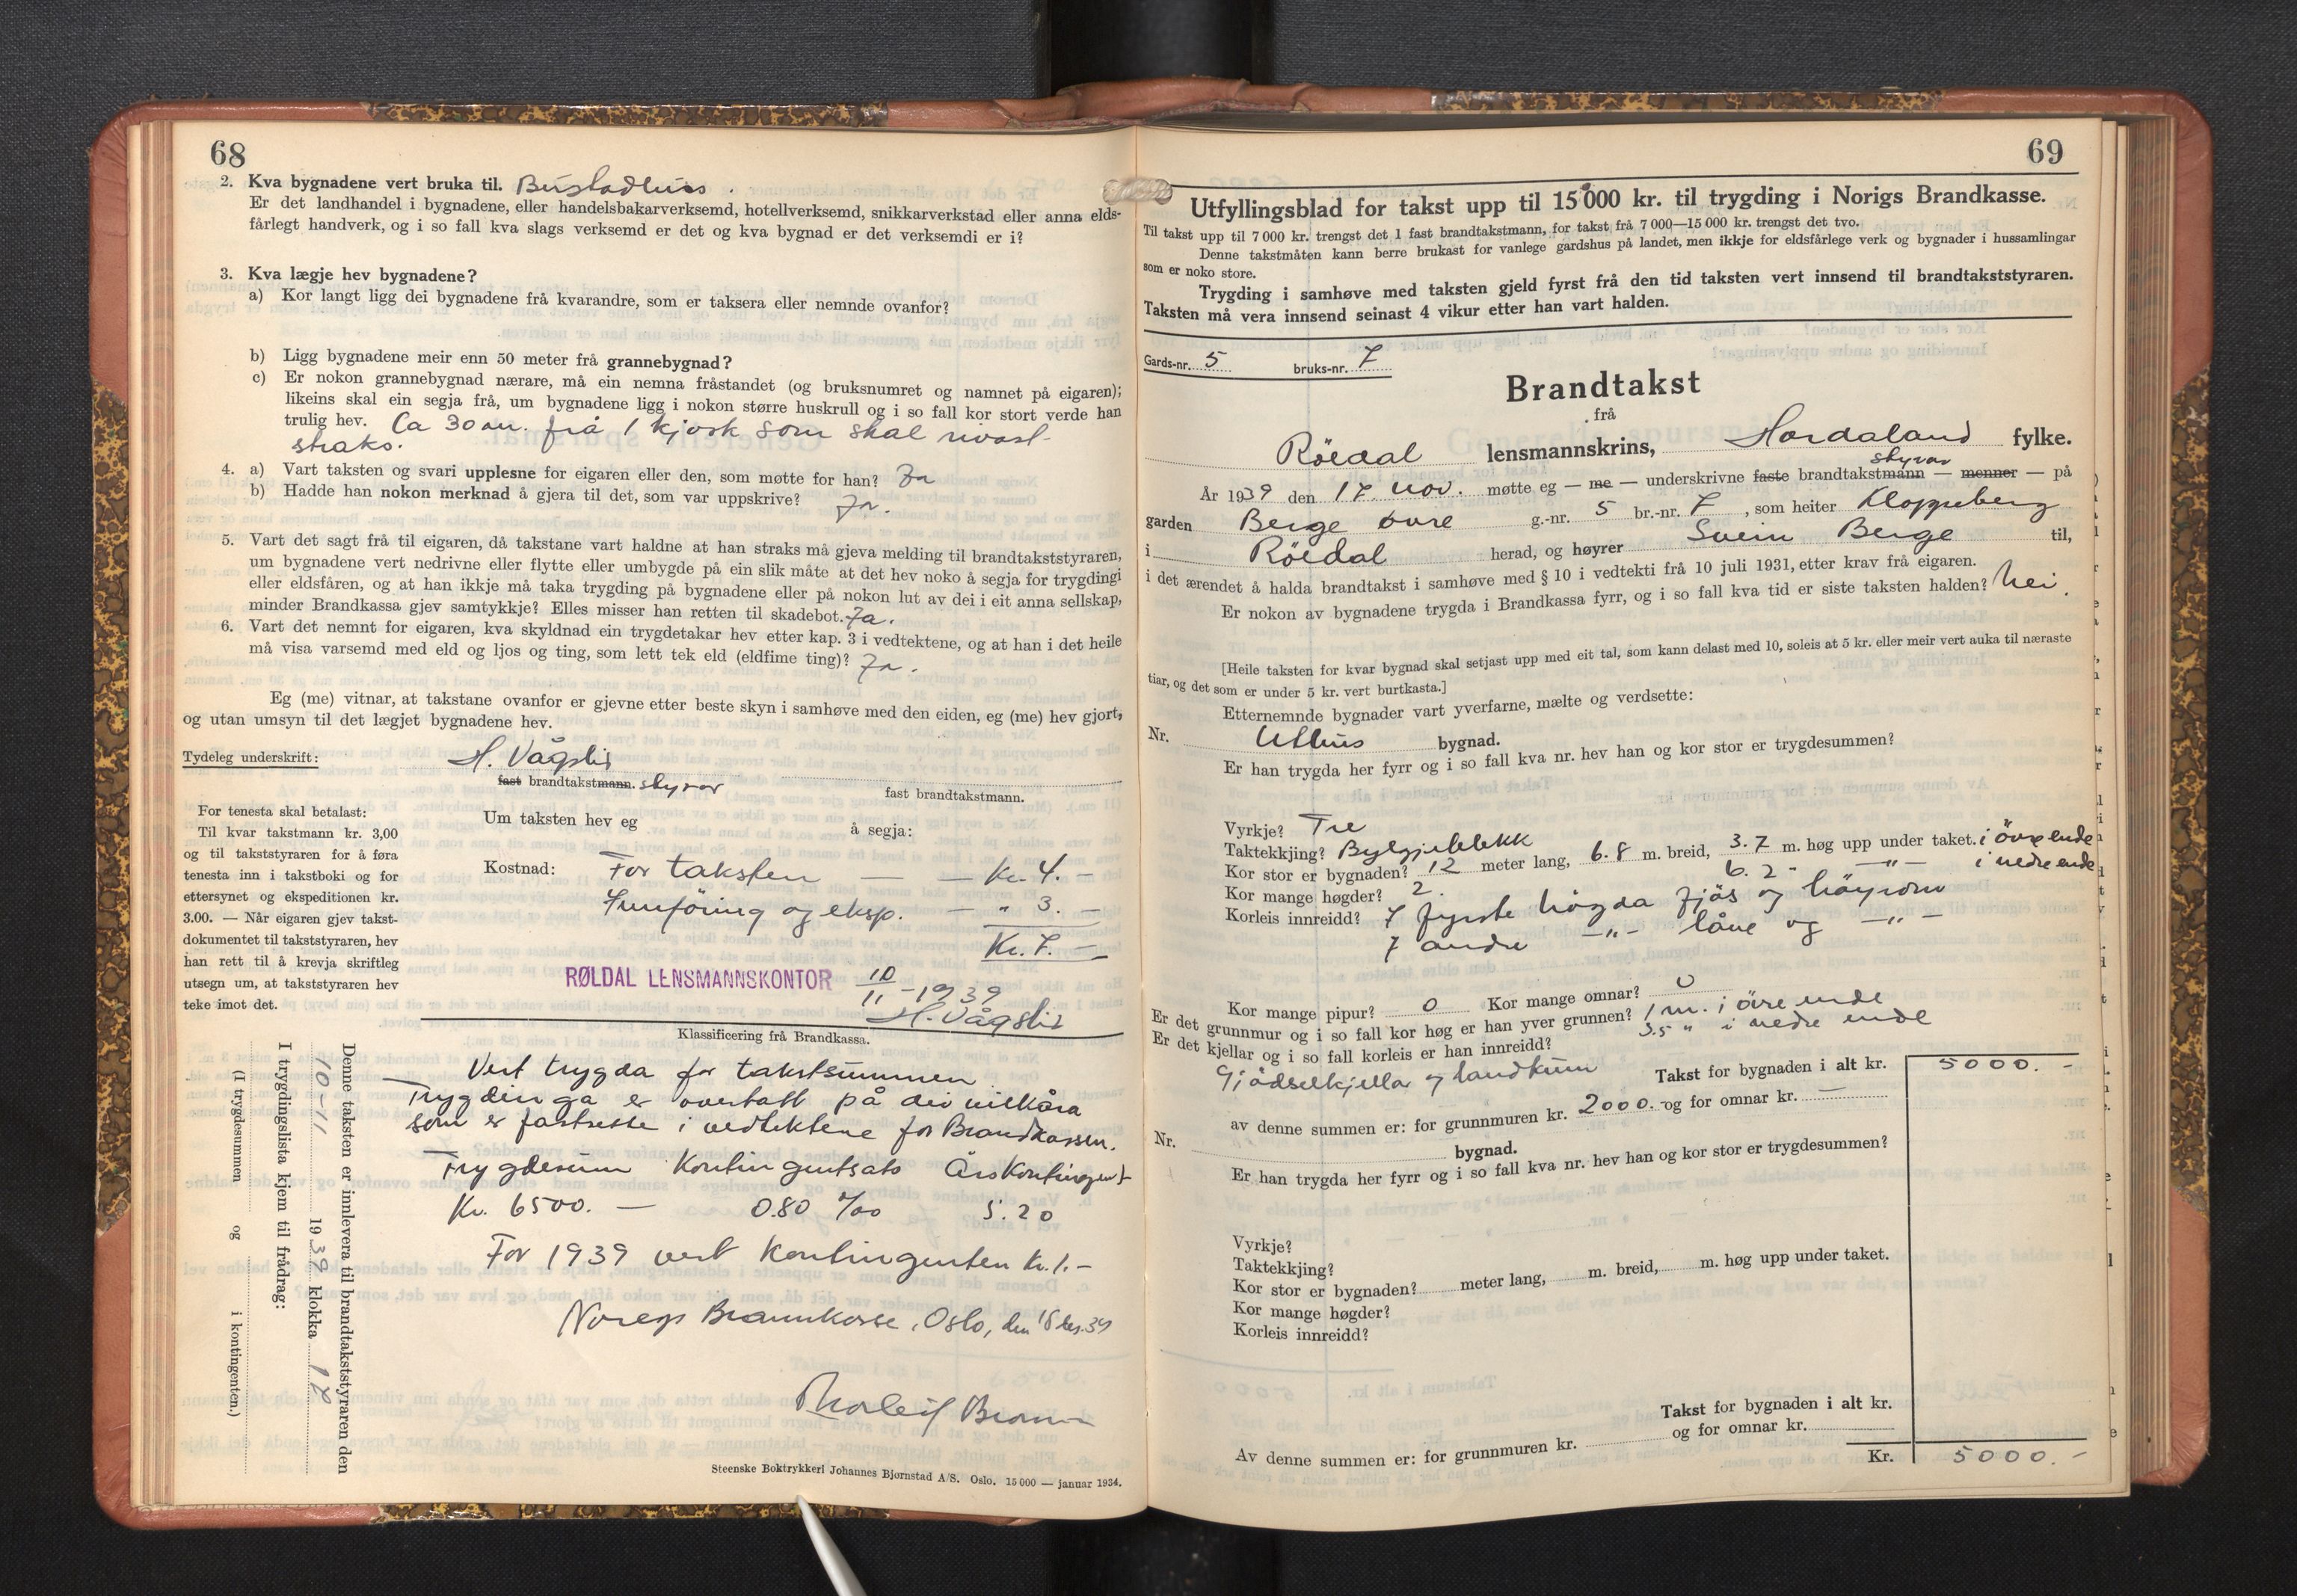 68
2. Kva bygnadene vert bruka til. Bustadhus.
Er det landhandel i bygnadene, eller handelsbakarverksemd, hotellverksemd, snikkarverkstad eller anna elds-
fårlegt handverk, og i so fall kva slags verksemd er det og kva bygnad er det verksemdi er i?
3. Kva lægje hev bygnadene?
a) Kor langt ligg dei bygnadene frå kvarandre, som er taksera eller nemnde ovanfor?
b) Ligg bygnadene meir enn 50 meter frå grannebygnad?
c) Er nokon grannebygnad nærare, må ein nemna fråstandet (og bruksnumret og namnet på eigaren);
likeins skal ein segja frå, um bygnadene ligg i nokon større huskrull og i so fall kor stort verde han
trulig hev. Ca 30 m. frå 1 kjosk som skal rivast
straks.
4. a) Vart taksten og svari upplesne for eigaren eller den, som møtte for han? Ja
b) Hadde han nokon merknad å gjera til det, som var uppskrive? Ja.
5. Vart det sagt frå til eigaren, då takstane vart haldne at han straks må gjeva melding til brandtakststyraren,
um bygnadene vert nedrivne eller flytte eller umbygde på ein slik måte at det hev noko å segja for trygdingi
eller eldsfåren, og at han ikkje må taka trygding på bygnadene eller på nokon lut av dei i eit anna sellskap,
minder Brandkassa gjev samtykkje? Elles misser han retten til skadebot. Ja.
6. Vart det nemnt for eigaren, kva skyldnad ein trygdetakar hev etter kap. 3 i vedtektene, og at han i det heile
må visa varsemd med eld og ljos og ting, som lett tek eld (eldfime ting)? Ja.
Eg (me) vitnar, at takstane ovanfor er gjevne etter beste skyn i samhøve med den eiden, eg (me) hev gjort,
og utan umsyn til det lægjet bygnadene hev.
Tydeleg underskrift: H. Vågslid
fast brandtakstmann. styrar
fast brandtakstmann.
Um taksten hev eg å segja:
For tenesta skal betalast:
Til kvar takstmann kr. 3,00
og til takststyraren for å føra
tenesta inn i takstboki og for
ettersynet og ekspeditionen kr.
3.00. — Når eigaren gjev takst-
dokumentet til takststyraren, hev
han rett til å krevja skriftleg
utsegn um, at takststyraren hev
teke imot det.
Kostnad: For taksten — — Kr. 4. –
Innföring og eksp. — " 3. –
Kr. 7. –
RØLDAL LENSMANNSKONTOR 10/11 - 1939
H. Vågslid
Klassifisering frå Brandkassa.
Vert trygda for takstsummen
Trygdinga er overtatt på dei vilkåra
som er fastsette i vedtektene for Brandkassen.
Trygdesum Kontingentsats Årskontingent
Kr. 6500. — 0.80 ‰ 5.20
For 1939 vert kontingenten kr. 1.–
Noregs Brannkasse, Oslo, den 18 des. 39
Denne taksten er innlevera til brandtakststyraren den
10-11 1939 klokka 12
I trygdingslista kjem til frådrag:
(I trygdesummen og i kontingenten.)
Steenske Boktrykkeri Johannes Bjørnstad A/S. Oslo. 15 000 — januar 1934.
69
Utfyllingsblad for takst upp til 15 000 kr. til trygding i Norigs Brandkasse.
Til takst upp til 7 000 kr. trengst det 1 fast brandtakstmann, for takst frå 7 000—15 000 kr. trengst det tvo.
Denne takstmåten kann berre brukast for vanlege gardshus på landet, men ikkje for eldsfårlege verk og bygnader i hussamlingar
som er noko store.
Trygding i samhøve med taksten gjeld fyrst frå den tid taksten vert innsend til brandtakststyraren.
Taksten må vera innsend seinast 4 vikur etter han vart halden.
Gards-nr. 5 bruks-nr. 7
Brandtakst
frå
Röldal lensmannskrins, Hordaland fylke.
styrar
År 1939 den 17. nov. møtte eg — me — underskrivne faste brandtakstmann — menner — på
garden Berge övre g.-nr. 5 br.-nr. 7, som heiter Kloppeberg
i Röldal herad, og høyrer Svein Berge til,
i det ærendet å halda brandtakst i samhøve med § 10 i vedtekti frå 10 juli 1931, etter krav frå eigaren.
Er nokon av bygnadene trygda i Brandkassa fyrr, og i so fall kva tid er siste taksten halden? Nei.
[Heile taksten for kvar bygnad skal setjast upp med eit tal, som kann delast med 10, soleis at 5 kr. eller meir vert auka til næraste
tiar, og det som er under 5 kr. vert burtkasta.]
Etternemnde bygnader vart yverfarne, mælte og verdsette:
Nr. Uthus bygnad.
Er han trygda her fyrr og i so fall kva nr. hev han og kor stor er trygdesummen?
Vyrkje? Tre
Taktekkjing? Bylgjeblekk
Kor stor er bygnaden? 12 meter lang, 6.8 m. breid, 3.7 m. høg upp under taket. i övre ende
6.2 - —"— i nedre ende
Kor mange høgder? 2.
Korleis innreidd? I fyrste högda fjös og höyrom
I andre —"— låve og —"—
Kor mange pipur? 0 Kor mange omnar? 0
Er det grunnmur og i so fall kor høg er han yver grunnen? 1 m. i övre ende
3.5 " i nedre ende
Er det kjellar og i so fall korleis er han innreidd?
Gjödselkjellar og landkum
Takst for bygnaden i alt kr. 5000. –
av denne summen er: for grunnmuren kr. 2000. – og for omnar kr. —
Nr. bygnad.
Er han trygda her fyrr og i so fall kva nr. hev han og kor stor er trygdesummen?
Vyrkje?
Taktekkjing?
Kor stor er bygnaden? meter lang, m. breid, m. høg upp under taket.
Kor mange høgder?
Korleis innreidd?
Takst for bygnaden i alt kr.
Av denne summen er: for grunnmuren kr. og for omnar kr.
Kr. 5000. –